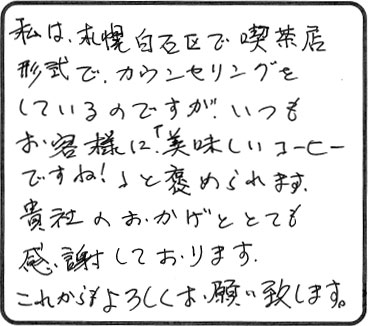 私は、札幌白石区で喫茶店
形式で、カウンセリングを
しているのですが、いつも
お客様に「美味しいコーヒー
ですね!」と褒められます。
貴社のおかげととても
感謝しております。
これからもよろしくお願い致します。